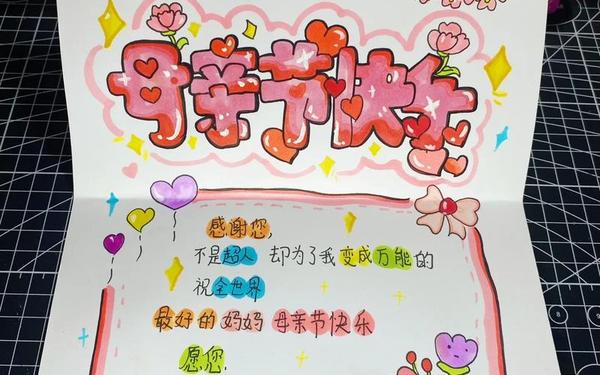 母亲节快乐
感谢您,
不是超人 却为了我变成万能的
祝全世界
最好的妈妈 母亲节快乐
愿您,